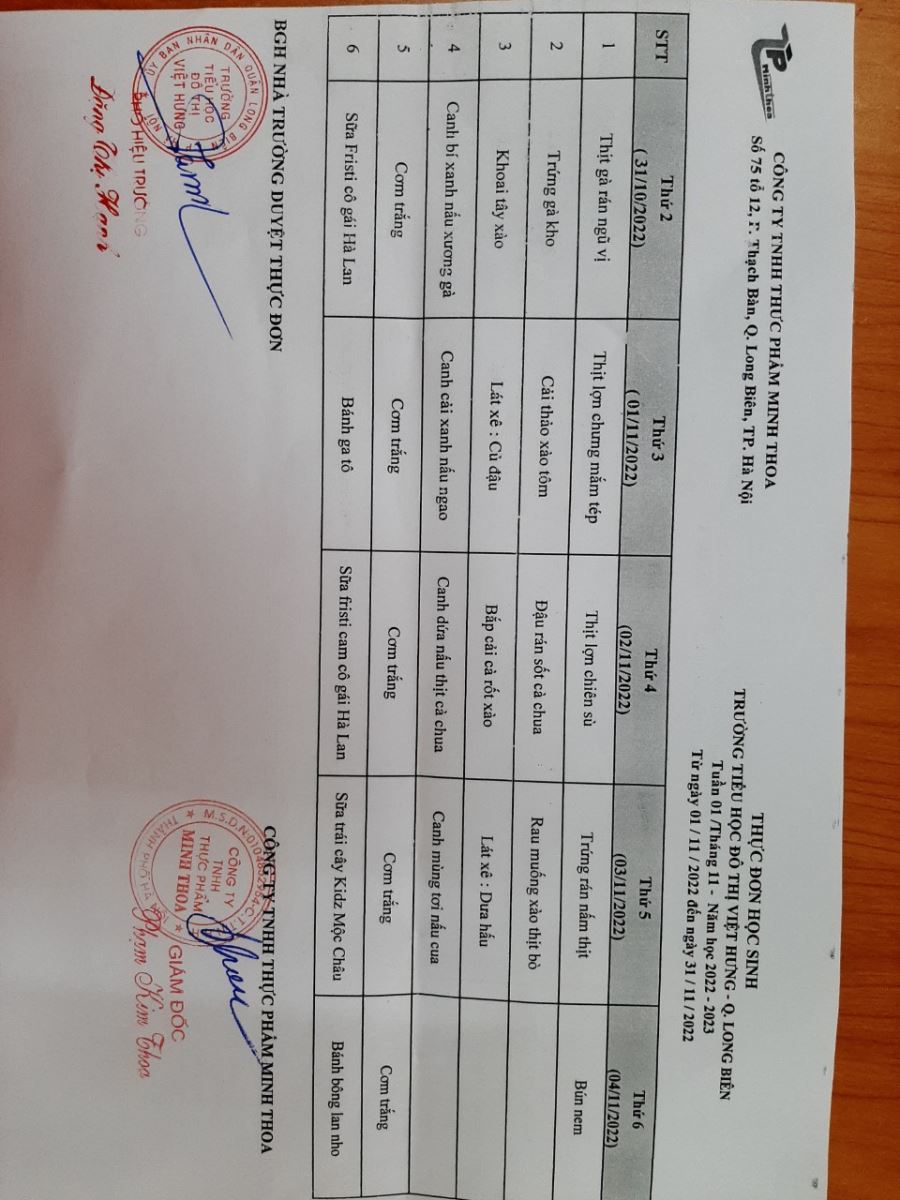 Minh thoa
CÔNG TY TNHH THỰC PHẨM MINH THOA
Số 75 tổ 12, P. Thạch Bàn, Q. Long Biên, TP. Hà Nội
THỰC ĐƠN HỌC SINH
TRƯỜNG TIỂU HỌC ĐÔ THỊ VIỆT HƯNG - Q. LONG BIÊN
Tuần 01 /Tháng 11 - Năm học 2022 - 2023
Từ ngày 01 / 11 / 2022 đến ngày 31 / 11 / 2022
STT Thứ 2 (31/10/2022) Thứ 3 (01/11/2022) Thứ 4 (02/11/2022) Thứ 5 (03/11/2022) Thứ 6 (04/11/2022)
1 Thịt gà rán ngũ vị Thịt lợn chưng mắm tép Thịt lợn chiên sù Trứng rán nấm thịt Bún nem
2 Trứng gà kho Cải thảo xào tôm Đậu rán sốt cà chua Rau muống xào thịt bò
3 Khoai tây xào Lát xê : Củ đậu Bắp cải cà rốt xào Lát xê : Dưa hấu
4 Canh bí xanh nấu xương gà Canh cải xanh nấu ngao Canh dứa nấu thịt cà chua Canh mùng tơi nấu cua
5 Cơm trắng Cơm trắng Cơm trắng Cơm trắng Cơm trắng
6 Sữa Fristi cô gái Hà Lan Bánh ga tô Sữa fristi cam cô gái Hà Lan Sữa trái cây Kidz Mộc Châu Bánh bông lan nho
BGH NHÀ TRƯỜNG DUYỆT THỰC ĐƠN
ỦY BAN NHÂN DÂN QUẬN LONG BIÊN
TRƯỜNG
TIỂU HỌC
ĐÔ THỊ
VIỆT HƯNG
PHÓ HIỆU TRƯỞNG
Đặng Thị Hạnh
CÔNG TY TNHH THỰC PHẨM MINH THOA
CÔNG TY
TNHH
THỰC PHẨM
MINH THOA
GIÁM ĐỐC
Phạm Kim Thoa